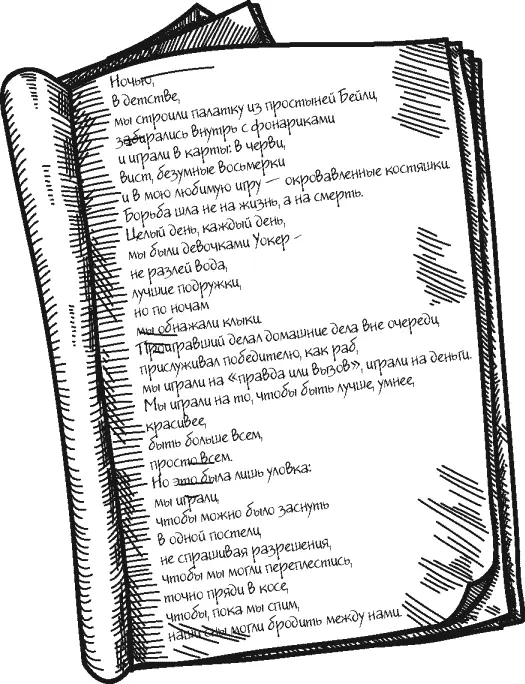 Ночью,
в детстве,
мы строили палатку из простыней Бейли,
забирались внутрь с фонариками
и играли в карты: в черви,
вист, безумные восьмерки
и в мою любимую игру — окровавленные костяшки.
Борьба шла не на жизнь, а на смерть.
Целый день, каждый день,
мы были девочками Уокер –
не разлей вода,
лучшие подружки,
но по ночам
мы обнажали клыки.
Проигравший делал домашние дела вне очереди,
прислуживал победителю, как раб,
мы играли на «правда или вызов», играли на деньги.
Мы играли на то, чтобы быть лучше, умнее,
красивее,
быть больше всем,
просто всем.
Но это была лишь уловка:
мы играли,
чтобы можно было заснуть
в одной постели,
не спрашивая разрешения,
чтобы мы могли переплестись,
точно пряди в косе,
чтобы, пока мы спим,
наши сны могли бродить между нами.